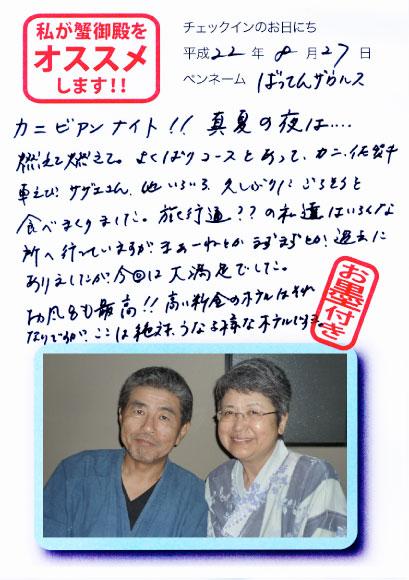 私が蟹御殿を
オススメ
します!!
チェックインのお日にち
平成22年8月27日
ペンネーム ばってんザウルス
カニビアンナイト!! 真夏の夜は....
燃えて燃えて。よくばりコースとあって、カニ、佐賀牛
車えび、サザエさん、他いろいろ、久しぶりに ごちそうと
食べまくりました。旅行通??の私達はいろんな
所へ行っていますが、まあーねとか まずまずとか、過去に
ありましたが、今回は大満足でした。
お風呂も最高!! 高い料金のホテルはそれ
なりですが、ここは絶対、うなる様なホテルです。
お墨付き